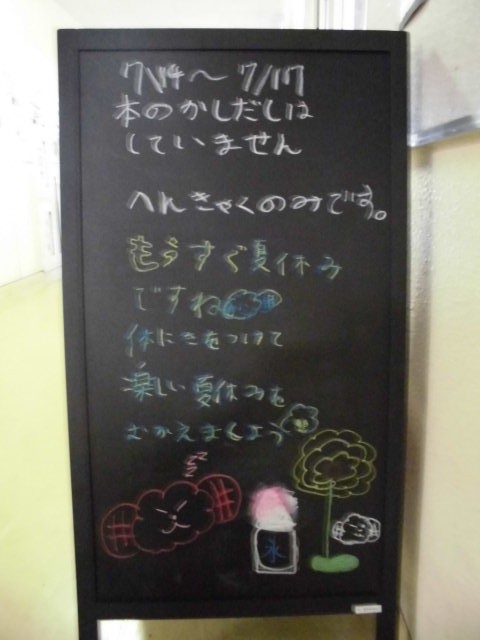 7/14〜7/17
本のかしだしは
していません
へんきゃくのみです。
もうすぐ夏休み
ですね
休にきをつけて
楽しい夏休みを
むかえましょう
zzz
氷